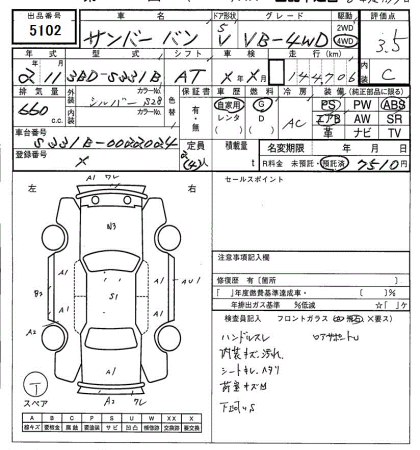 出品番号 車名 ドア形状 グレード 駆動 評価点
5102 サンバー バン 5 V VB-4WD 2WD 4WD 3.5
年式 型式 シフト 車検 走行(km) 内装
2年11月 3BD-S331B AT X年X月 144,706 C
排気量 外装 カラーNo. 色替 保証書 車歴 燃料 冷房 装備(純正部品に限る)
660 c.c. シルバー S28 有・無 自家用 レンタ ( ) G D ( ) AC PS PW ABS
内装 カラーNo. エアB AW SR
革 ナビ TV
車台番号 定員 積載量
S331B-0022024 2(4)人 t 名変期限 年 月 日
登録番号
X R料金 未預託・預託済 7510円
左 右 セールスポイント
A1 ワレ
N3
A1 A1
A1 A1 AU1
B2 S1
A2 A1
A2 ワレ
T
スペア
注意事項記入欄
修復歴 有 [箇所 ]
「 」年度燃費基準達成車・ [ ]%
年排出ガス基準 %低減 ☆「 」ケ
検査員記入 フロントガラス (X要ス)
ハンドルスレ
内装キズ、汚れ
シートキレ、ヘタリ
荷室キズM
下回りS
A B C P S U W X XX
線キズ 要鈑金 腐蝕 要塗装 サビ 凹凸 補修跡 交換跡 要交換